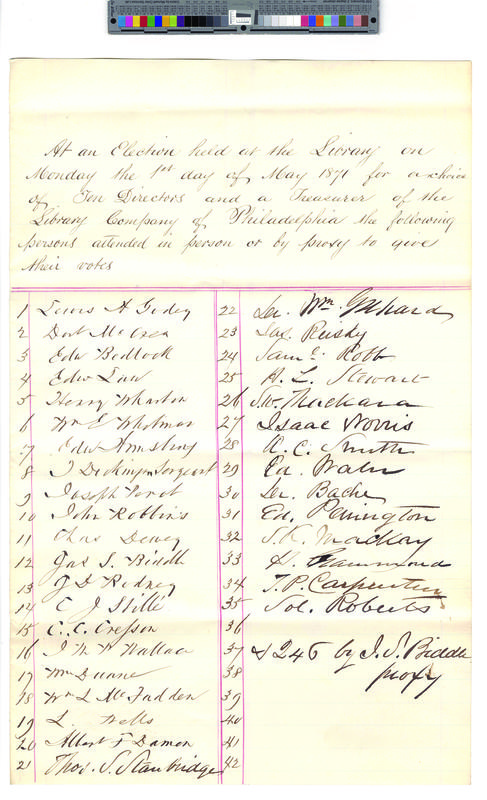 At an Election held at the Library on
Monday the 1st day of May 1871 for a choice
of Ten Directors and a Treasurer of the
Library Company of Philadelphia the following
persons attended in person or by proxy to give
their votes
1 Lewis A Godey
2 Dart McCrea
3 Edw Bedlock
4 Edw Law
5 Henry Wharton
6 Wm E Whitman
7 Edw Armstrong
8 J Dickinson Sergeant
9 Joseph
10 John Robbins
11 Chas Dewey
12 Jas S. Biddle
13 J D Rodney
14 C J Stillé
15 C. C. Cresson
16 J W W Wallace
17 Wm Duane
18 Wm L McFadden
19 L. Wells
20 Albert F Damon
21 Thos. S. Stanbridge
22 Wm Gebhard
23 Jas.
24 Saml Robb
25 H. L. Stewart
26
27 Isaac Norris
28 R. C. Smith
29 Ed. Waln
30 Bache
31 Ed. Penington
32 S. K. Mackay
33 H. Hammond
34 T. P. Carpenter
35 Sol. Roberts
36
37 & 246 by J. S. Biddle
38 proxy
39
40
41
42